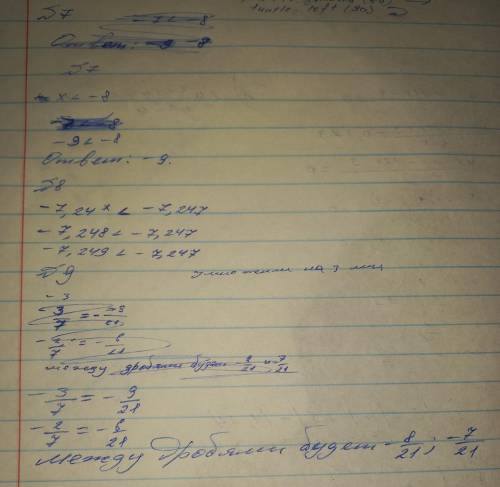 turtle.left(90)
№7 -7 < -8
Ответ: -9 -8
№7
x < -8
-9 < -8
Ответ: -9.
№8
-7,24* < -7,247
-7,248 < -7,247
-7,249 < -7,247
№9 умножаем на 3
-3/7 = -9/21
-2/7 = -6/21
между дробями будет -8/21 и -7/21
-3/7 = -9/21
-2/7 = -6/21
между дробями будет -8/21; -7/21